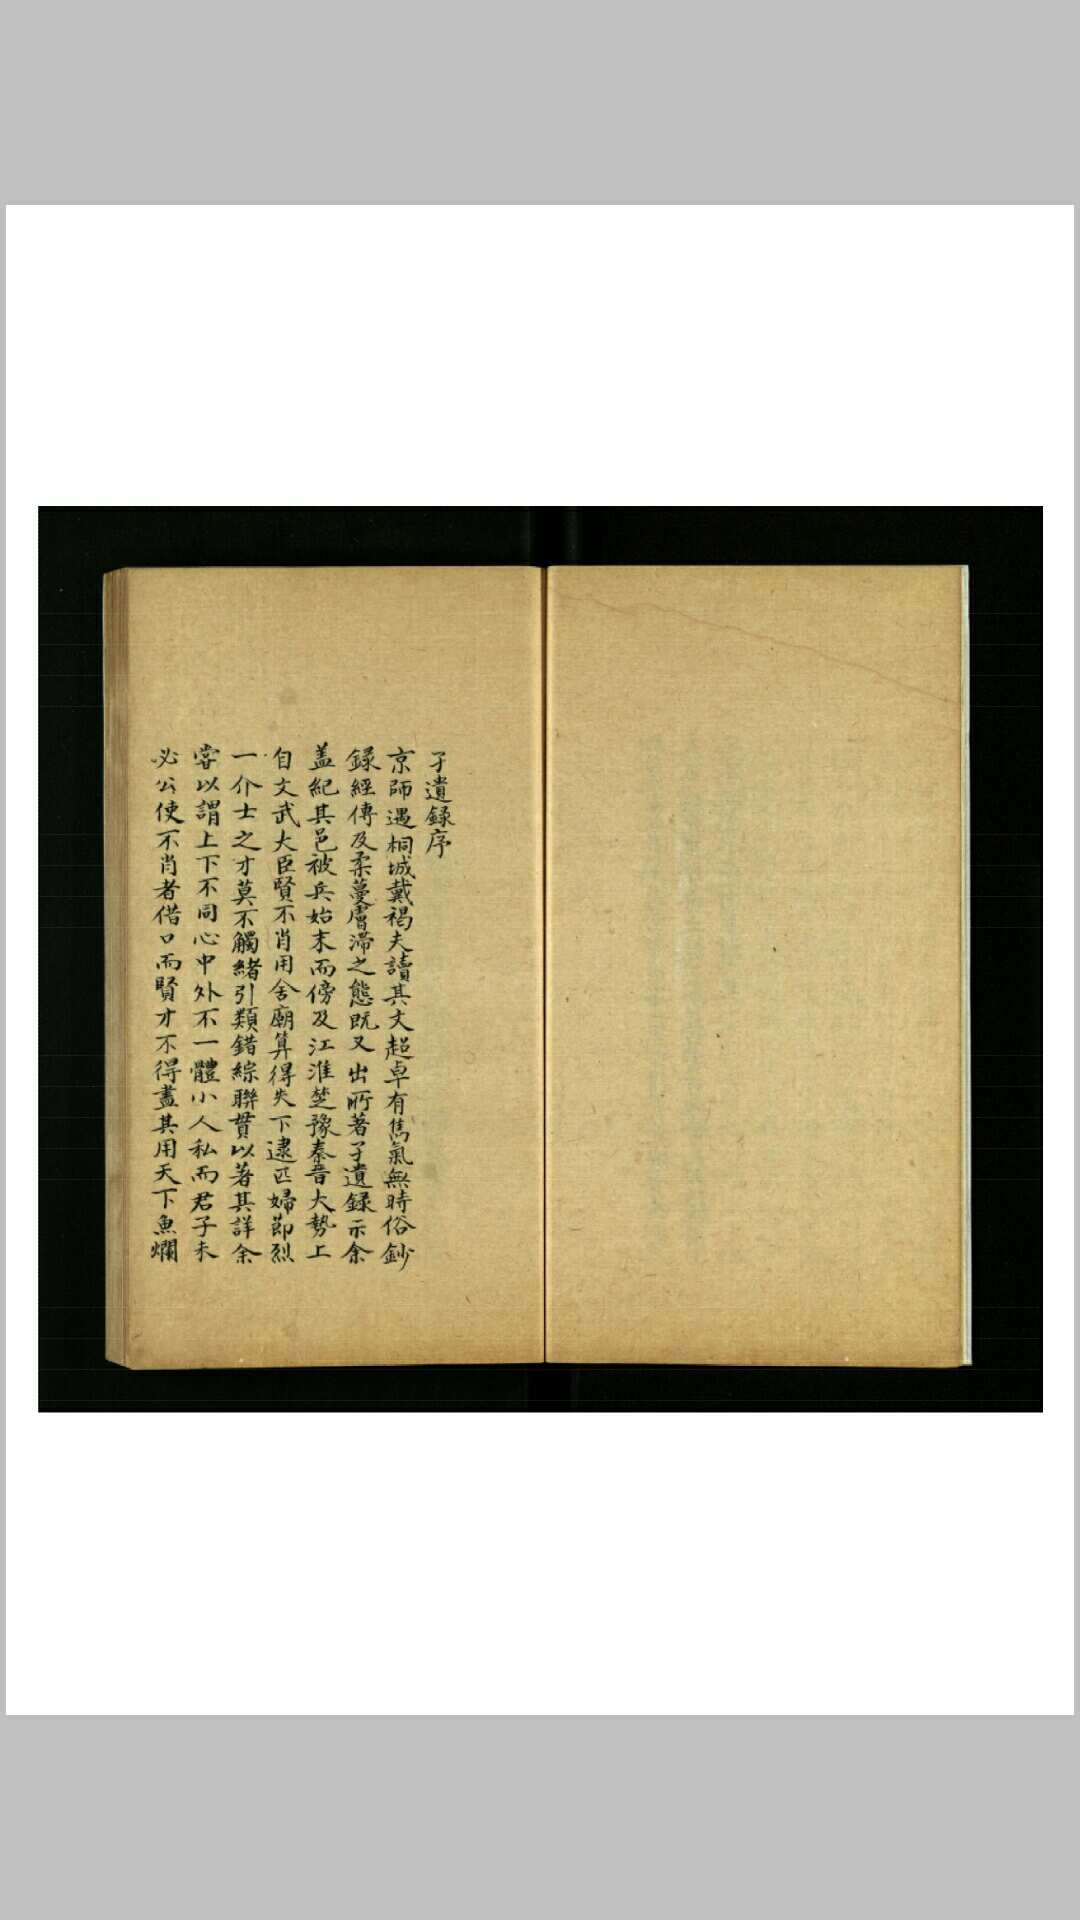 孑遺録序
京師遇桐城戴褐夫讀其文超卓有雋氣無時俗鈔
録經傳及柔蔓膚滯之態既又出所著孑遺録示余
盖紀其邑被兵始末而傍及江淮楚豫秦晋大勢上
自文武大臣賢不肖用舍廟算得失下逮匹婦節烈
一介士之才莫不觸緒引類錯綜聯貫以著其詳余
嘗以謂上下不同心中外不一體小人私而君子未
必公使不肖者借口而賢才不得盡其用天下魚爛